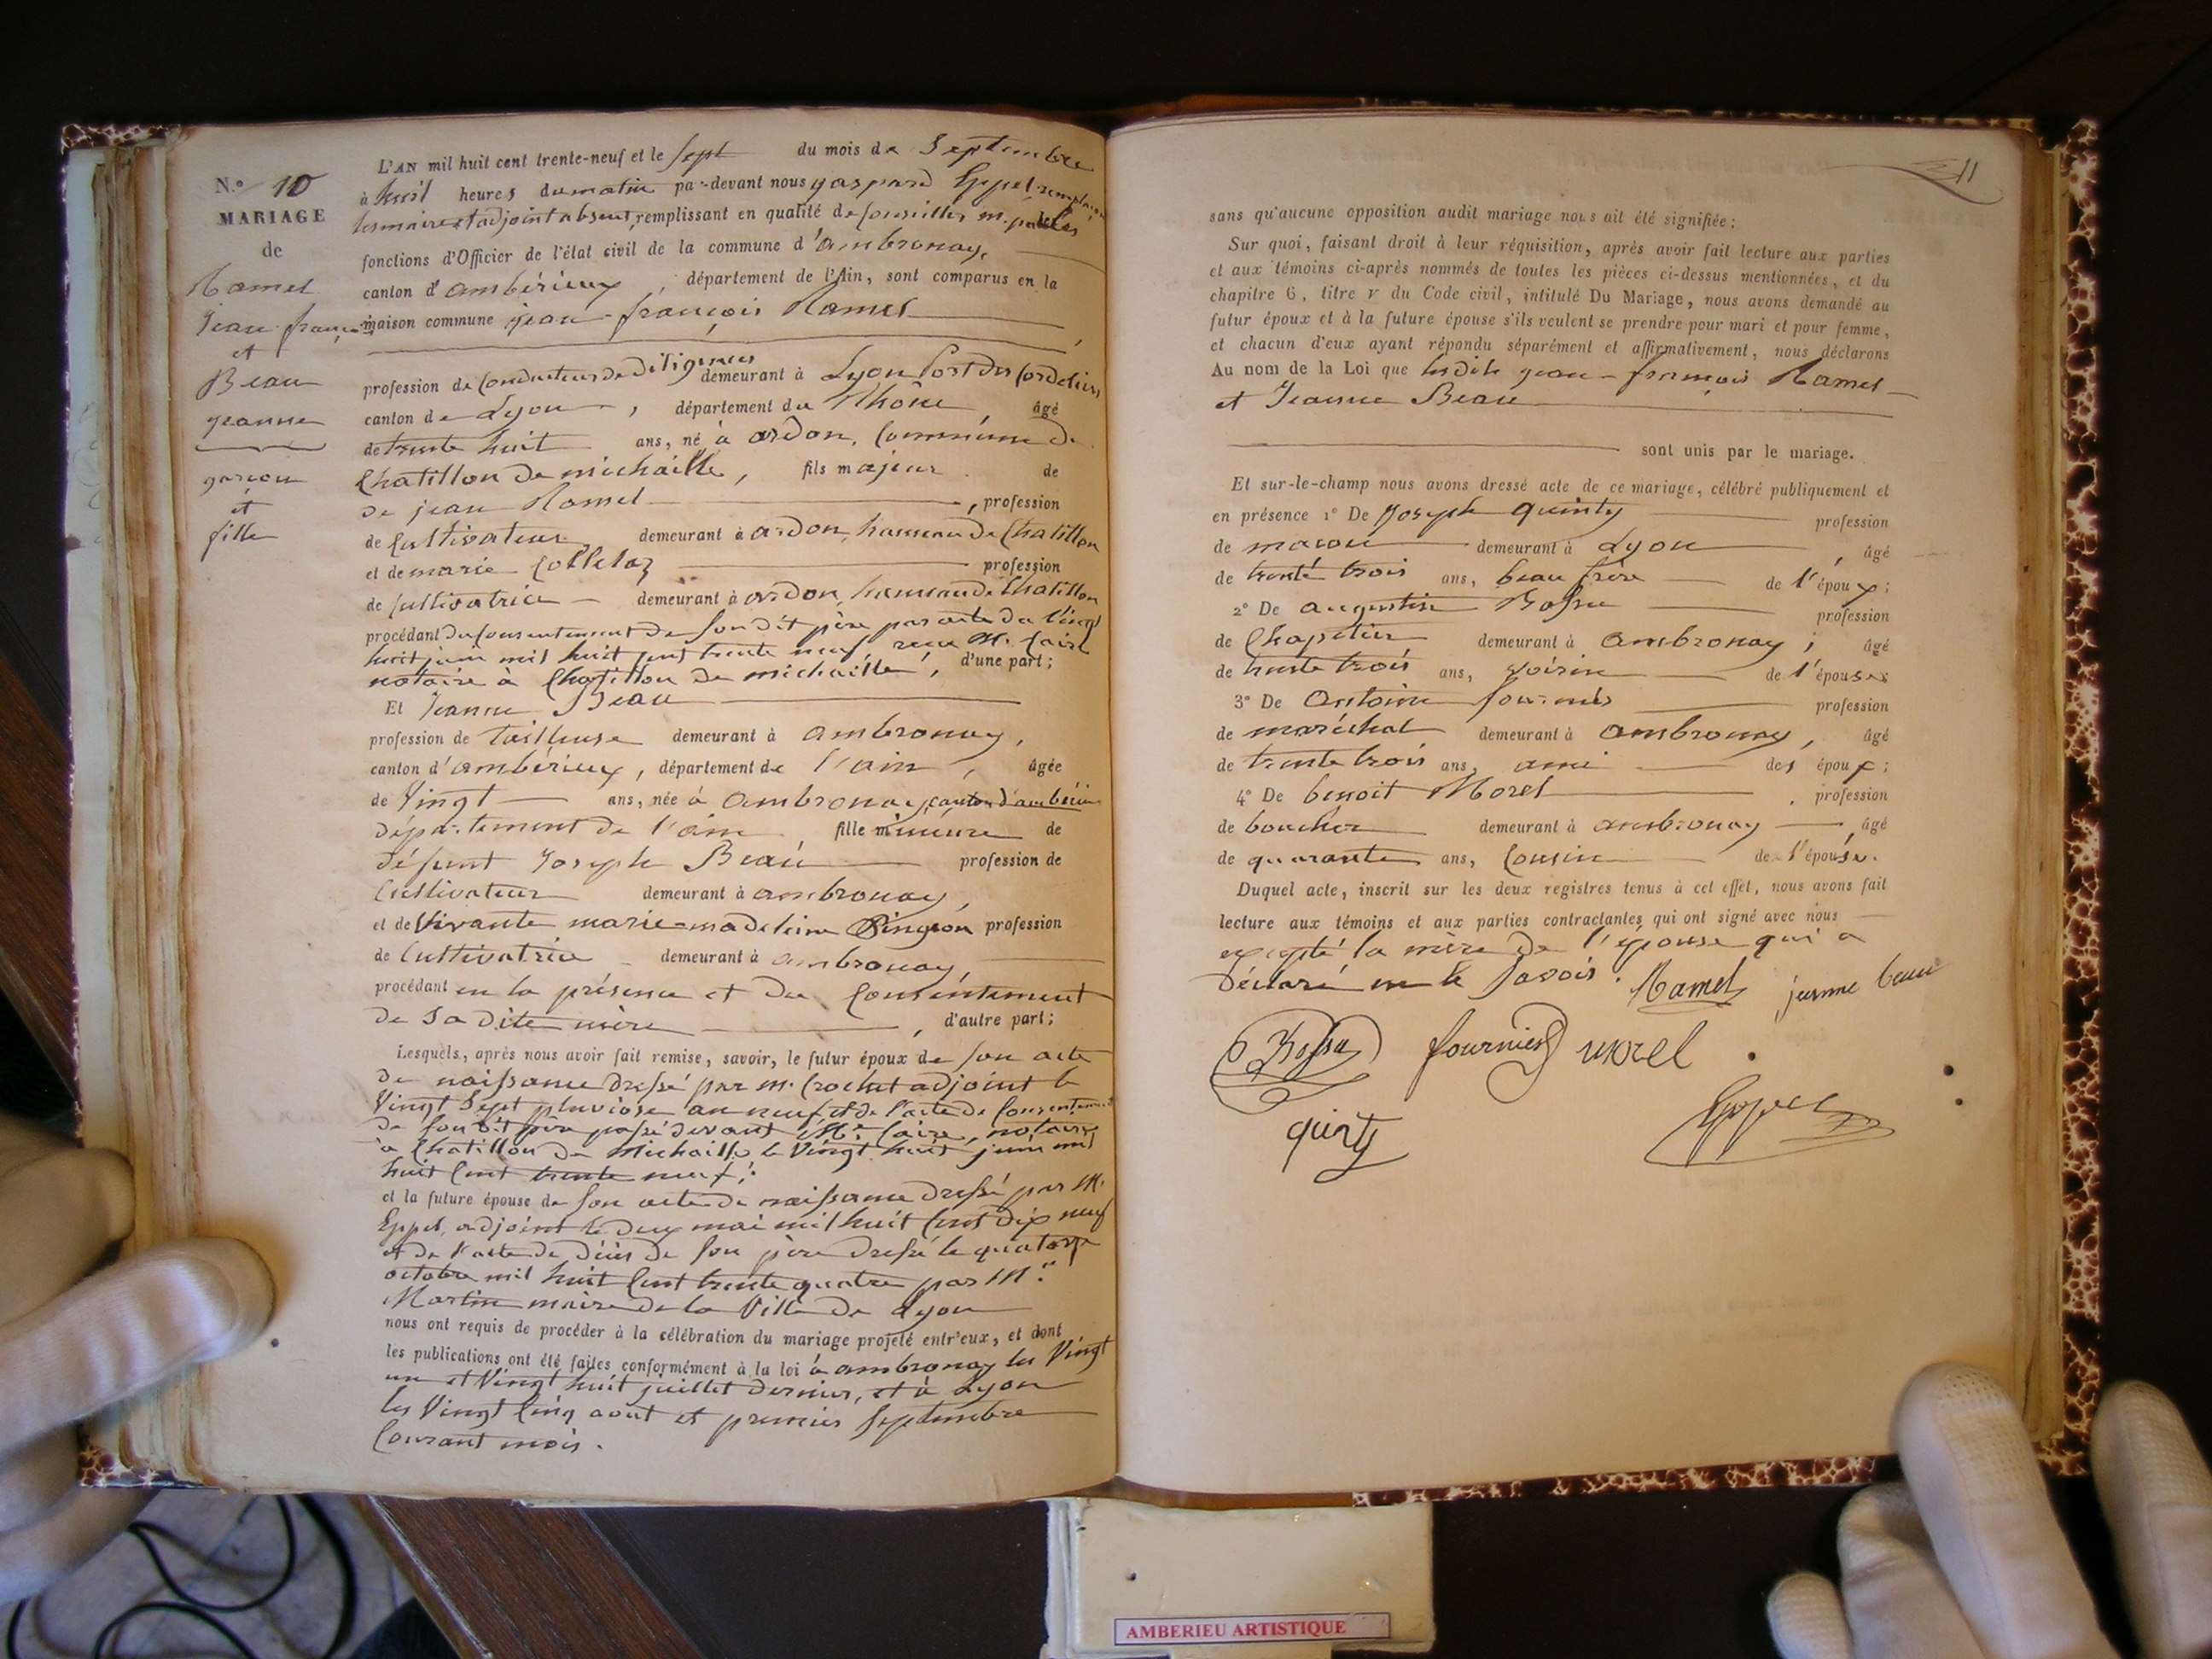 N.° 10
MARIAGE
de
Ramel
Jean-françois
et
Beau
jeanne
garcon
et
fille
L'AN mil huit cent trente-neuf et le sept du mois de Septembre
à huit heures du matin par-devant nous gaspard Eppel remplaçant
les maire et adjoint absent, remplissant en qualité de Conseiller m.pal les
fonctions d'Officier de l'état civil de la commune d'ambronay,
canton d'ambérieux, département de l'Ain, sont comparus en la
maison commune jean-françois Ramel
profession de Conducteur de Diligences demeurant à Lyon Port des Cordeliers
canton de Lyon, département du Rhône, âgé
de trente huit ans, né à ardon, Commune de
Chatillon de michaille, fils majeur de
de jean Ramel, profession
de Cultivateur demeurant à ardon, hameau de Chatillon
et de marie Colletaz profession
de Cultivatrice demeurant à ardon, hameau de Chatillon
procédant du Consentement de son dit père par acte du Vingt
huit juin mil huit cent trente neuf, reçu Me
notaire à Chatillon de michaille, d'une part;
Et Jeanne Beau
profession de Tailleuse demeurant à ambronay,
canton d'ambérieux, département de l'ain, âgée
de Vingt ans, née à ambronay, canton d'ambérieux
département de l'ain fille mineure de
défunt Joseph Beau profession de
Cultivateur demeurant à ambronay,
et de Vivante marie-madeleine Pingeon profession
de Cultivatrice demeurant à ambronay,
procédant en la présence et du Consentement
de sa dite mère, d'autre part;
Lesquels, après nous avoir fait remise, savoir, le futur époux de son acte
de naissance dressé par m. Crochet adjoint le
Vingt Sept pluviose an neuf et de l'acte de Consentement
de son dit père passé devant Me notaire
à Chatillon de Michaille le Vingt huit juin mil
huit Cent trente neuf;
et la future épouse de son acte de naissance dressé par M.
Eppel, adjoint le deux mai mil huit Cent dix neuf
et de l'acte de décès de son père dressé le quatorze
octobre mil huit Cent trente quatre par Mr
Martin maire de la Ville de Lyon
nous ont requis de procéder à la célébration du mariage projeté entr'eux, et dont
les publications ont été faites conformément à la loi à ambronay les Vingt
un et Vingt huit juillet dernier, et à Lyon
les Vingt Cinq aout et premier Septembre
Courant mois.
11
sans qu'aucune opposition audit mariage nous ait été signifiée;
Sur quoi, faisant droit à leur réquisition, après avoir fait lecture aux parties
et aux témoins ci-après nommés de toutes les pièces ci-dessus mentionnées, et du
chapitre 6, titre V du Code civil, intitulé Du Mariage, nous avons demandé au
futur époux et à la future épouse s'ils veulent se prendre pour mari et pour femme,
et chacun d'eux ayant répondu séparément et affirmativement, nous déclarons
Au nom de la Loi que lesdits jean-françois Ramel
et Jeanne Beau
sont unis par le mariage.
Et sur-le-champ nous avons dressé acte de ce mariage, célébré publiquement et
en présence 1° De Joseph quinty profession
de macon demeurant à Lyon, âgé
de trente trois ans, beau frère de l'époux;
2° De augustin Bossu profession
de Chapelier demeurant à ambronay; âgé
de trente trois ans, voisin de l'épouse;
3° De Antoine fournier profession
de maréchal demeurant à ambronay, âgé
de trente trois ans, ami des époux;
4° De benoit Morel, profession
de boucher demeurant à ambronay, âgé
de quarante ans, Cousin de l'épouse.
Duquel acte, inscrit sur les deux registres tenus à cet effet, nous avons fait
lecture aux témoins et aux parties contractantes qui ont signé avec nous
excepté la mère de l'épouse qui a
déclaré ne le savoir. Ramel jeanne beau
Bossu fournier morel
quinty Eppel
AMBERIEU ARTISTIQUE